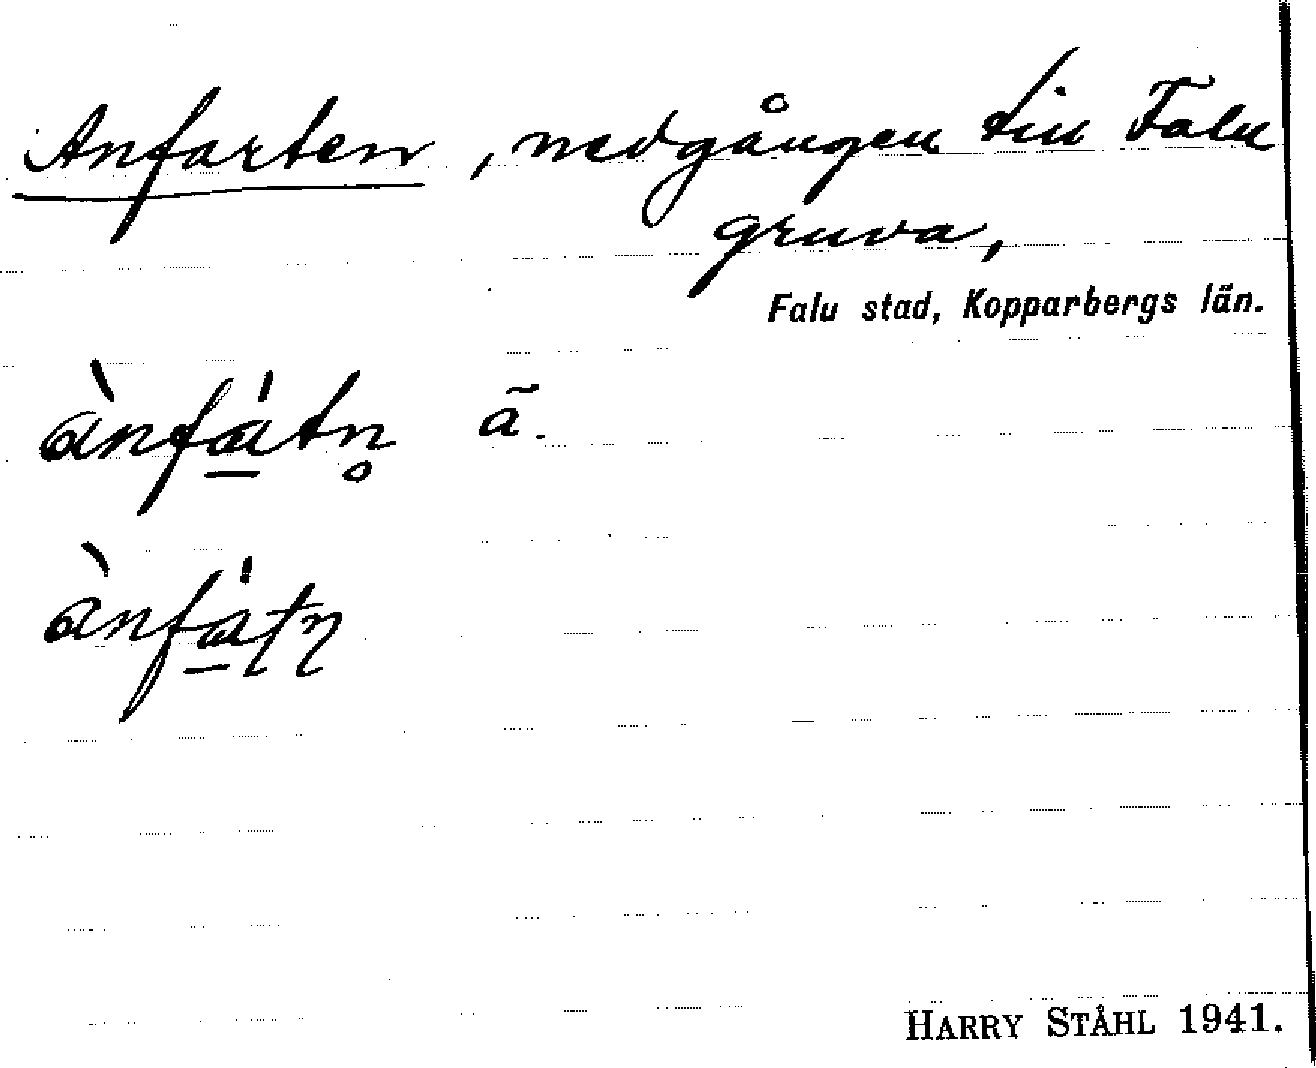 Anfarten, nedgången till Falu
gruva,
Falu stad, Kopparbergs län.
ànfá̱tn̥ ã.
ànfá̱ʈɳ
HARRY STÅHL 1941.